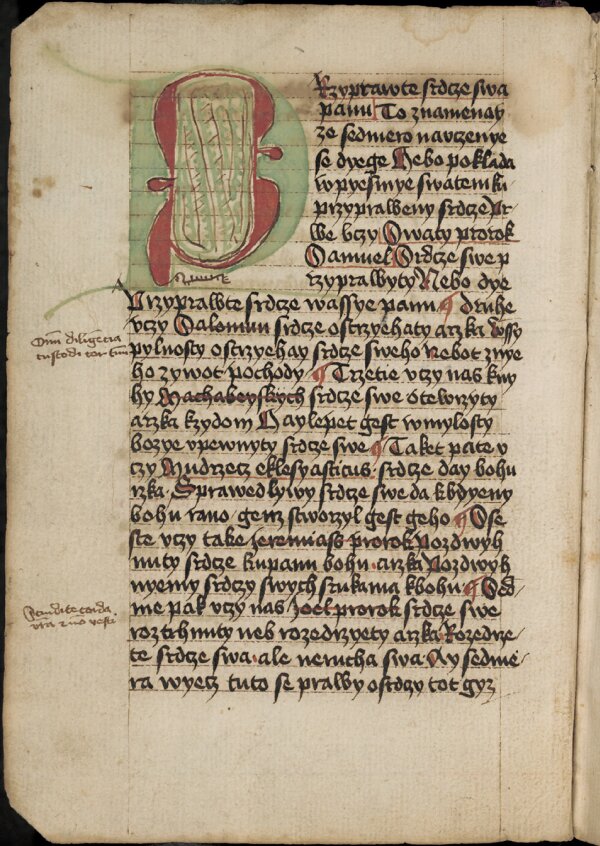 Przyprawte srdcze swa
panu To znamenay
ze sedmero navczenye
se dyege Nebo poklada
w pyesmye swatem ku
przypraweny srdcze Pr
we vczy Swaty prorok
Samuel Srdcze swe p
rzyprawyty Nebo dye
Przyprawte srdcze wassye panu ¶ druhe
vczy Salomun srdcze ostrzyehaty arzka wssy
pylnosty ostrzyehay srdcze sweho nebot znye
ho zywot pochody ¶ Trzetie vczy nas kny
hy Machabeyskych srdcze swe otewrzyty
arzka kzydom Naylepet gest w mylosty
bozye vpewnyty srdcze swe ¶ Taket pate v
czy Mudrzecz eklesyasticus srdcze day bohu
rzka Sprawedlywy srdcze swe da kbdyeny
bohu rano genz stworzyl gest geho ¶ Sse
ste vczy take Jeremiass prorok Pozdwyh
nuty srdcze kupanu bohu arzka Pozdwyh
nyemy srdczy swych srukama kbohu ¶ Sed
me pak vczy nas Joel prorok srdcze swe
roztrhnuty neb rozedrzyety arzka Rozedrze
te srdcze swa ale nerucha swa Ay sedme
ra wyecz tuto se prawy o srdczy tot gyz
Omni diligencia
custodi cor tuum
Scindite corda
vra z no vesti